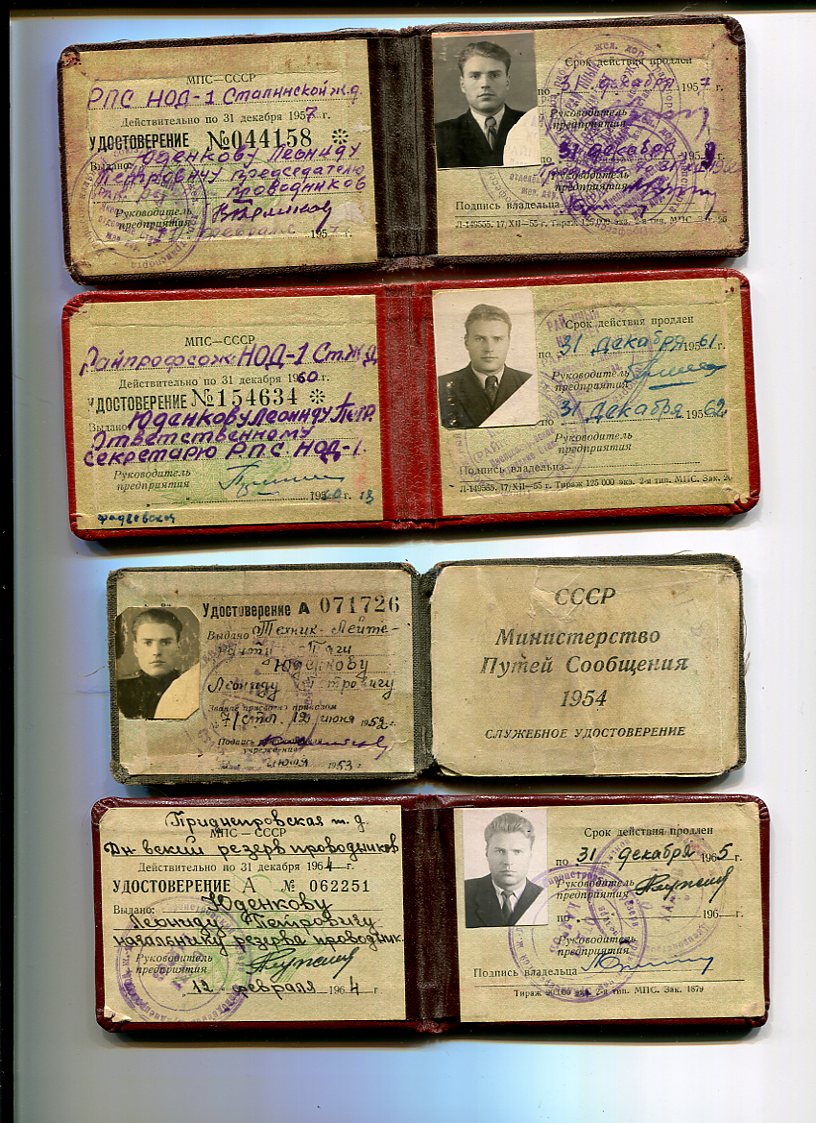 МПС—СССР
РПС НОД-1 Сталинской ж.д.
Действительно по 31 декабря 1957 г.
УДОСТОВЕРЕНИЕ №044158 ✻
Выдано Юденкову Леониду
Петровичу председателю
проводников
Руководитель
предприятия
февраля 1957 г.
Срок действия продлен
по 31 декабря 1957 г.
Руководитель
предприятия
по 31 декабря 195
Подпись владельца
Л-149555. 17/XII—55 г. Тираж 125 000 экз. 2-я тип. МПС. З
МПС—СССР
Райпрофсож НОД-1 Ст.ж.д.
Действительно по 31 декабря 1960 г.
УДОСТОВЕРЕНИЕ №154634 ✻
Выдано Юденкову Леониду Петр.
Ответственному
секретарю РПС НОД-1.
Руководитель
предприятия
Срок действия продлен
по 31 декабря 1961 г.
Руководитель
предприятия
по 31 декабря 1962 г.
Руководитель
предприятия
Подпись владельца
Л-149555. 17/XII—55 г. Тираж 125 000 экз. 2-я тип. МПС. Зак. 2
Удостоверение А 071726
Выдано Техник-Лейте-
нанту Тяги
Юденкову
Леониду Петровичу
Звание присвоено приказом
июня 1952 г.
Подпись
учреждения
июля 1953 г.
СССР
Министерство
Путей Сообщения
1954
СЛУЖЕБНОЕ УДОСТОВЕРЕНИЕ
Приднепровская ж.д.
МПС—СССР
Дн-вский резерв проводников
Действительно по 31 декабря 1964 г.
УДОСТОВЕРЕНИЕ А № 062251
Выдано: Юденкову
Леониду Петровичу
начальнику резерва проводник.
Руководитель
предприятия
„12„ февраля 1964 г.
Срок действия продлен
по 31 декабря 1965 г.
Руководитель
предприятия
по 196 г.
Руководитель
предприятия
Подпись владельца
Тираж экз. 2-я тип. МПС. Зак. 1879